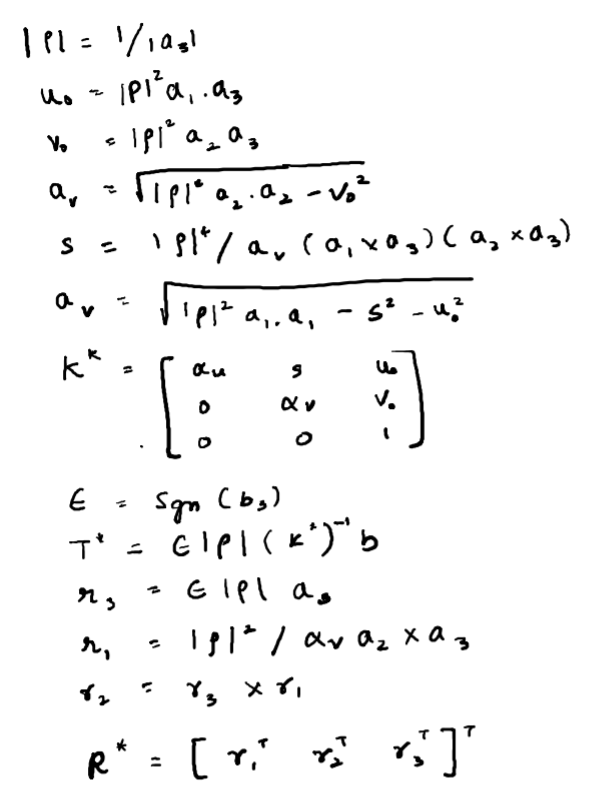 |ρ| = 1/|a₃|
u₀ = |ρ|² a₁ . a₃
v₀ = |ρ|² a₂ a₃
aᵥ = √(|ρ|² a₂ . a₂ - v₀²)
s = |ρ|⁴ / aᵥ (a₁ × a₃) (a₂ × a₃)
aᵥ = √(|ρ|² a₁ . a₁ - s² - u₀²)
K* = [ αu s u₀
0 αv v₀
0 0 1 ]
ε = sgn (b₃)
T* = ε |ρ| (K*)⁻¹ b
r₃ = ε |ρ| a₃
r₁ = |ρ|² / αv a₂ × a₃
r₂ = r₃ × r₁
R* = [ r₁ᵀ r₂ᵀ r₃ᵀ ]ᵀ